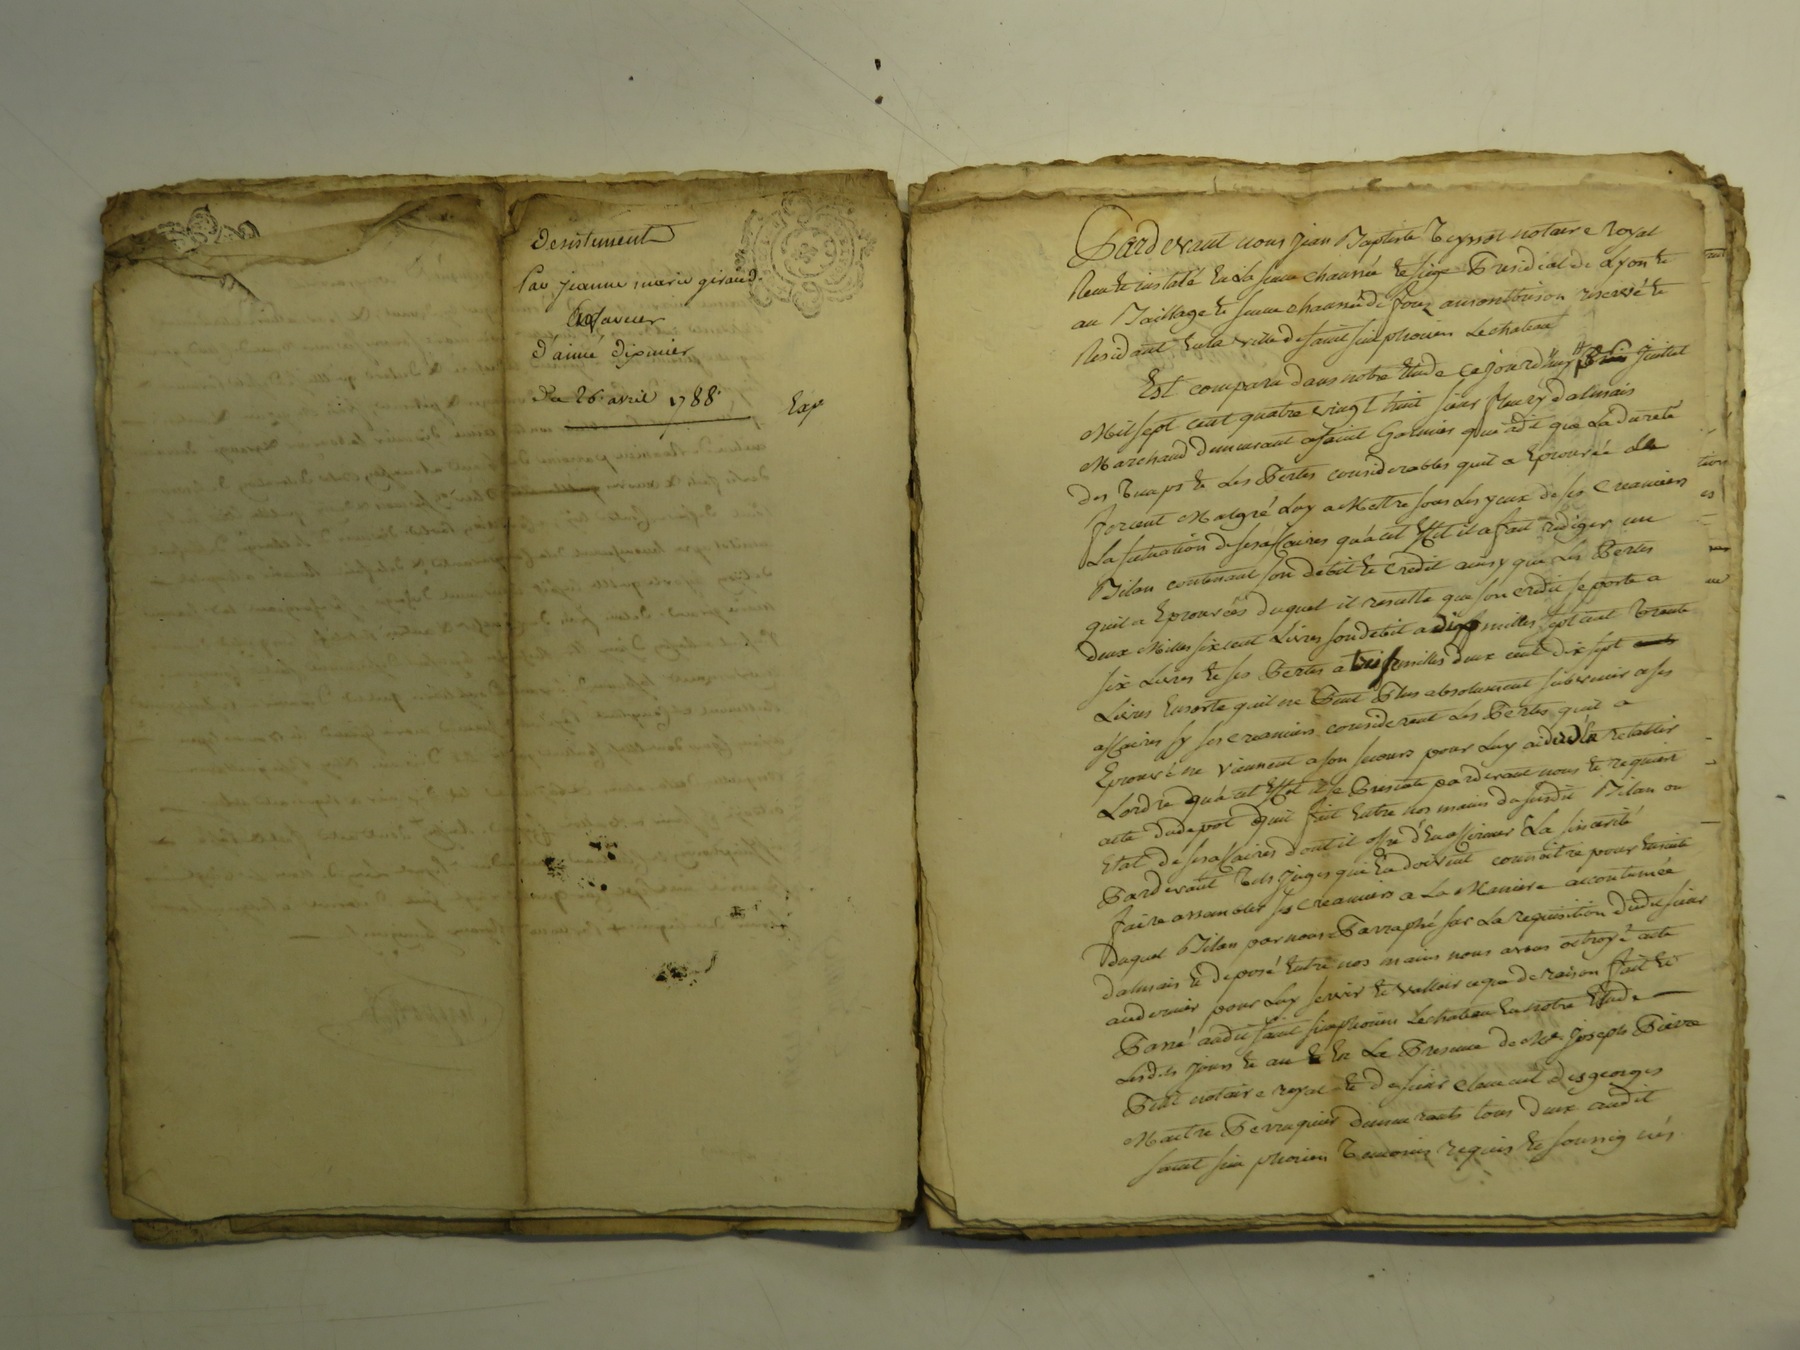 Desistement
Par jeanne marie giraud
En faveur
d'aimé diximier
Du 26 avril 1788
Exp
Pardevant nous jean Baptiste Teyssot notaire Royal
Reçu et instalé en la senechaussée et siege Presidial de Lyon et
au Baillage et senechaussée de forez a montbrison reservé et
Residant en la ville de saint simphorien Le chateau
Est comparu dans notre Etude ce jourdhuy juillet
Mil sept cent quatre vingt huit sieur fleury dalmais
Marchand demeurant a saint Galmier qui a dit que La dureté
des Temps et Les Pertes considerables quil a Eprouvée le
forcent Malgré Luy a Mettre sous Les yeux de ses Creanciers
La situation de ses affaires qu'a cet Effet il a fait rediger un
Bilan contenant son debit et credit ainsy que Les Pertes
quil a Eprouvées duquel il resulte que son credit se porte a
deux Milles six cent Livres son debit a dix milles sept cent trente
six Livres et ses Pertes a milles deux cent dix sept
Livres Ensorte quil ne Peut Plus absolument subvenir a ses
affaires sy ses creanciers considerent Les Pertes quil a
Eprouvé ne viennent a son secours pour Luy aider a retablir
Lordre qua cet Effet il se Presente pardevant nous et requiert
acte du depot quil fait Entre nos mains du susdit Bilan ou
Etat de ses affaires dont il offre d'En affirmer La sincerité
Pardevant Tels juges qui En doivent connoître pour Ensuite
faire assembler ses creanciers a La Maniere accoutumée
Duquel Bilan par nous Parraphé sur La requisition dudit sieur
dalmais et deposé Entre nos mains nous avons octroyé acte
au dernier pour Luy servir et valloir ce que de raison fait et
Passé audit saint simphorien Le chateau En notre Etude
Lesdits jours et an En La Presence de Me joseph Pierre
notaire royal et de sieur clement desgeorges
Maitre Perruquier demeurants tous deux audit
saint simphorien Temoins requis et soussignés